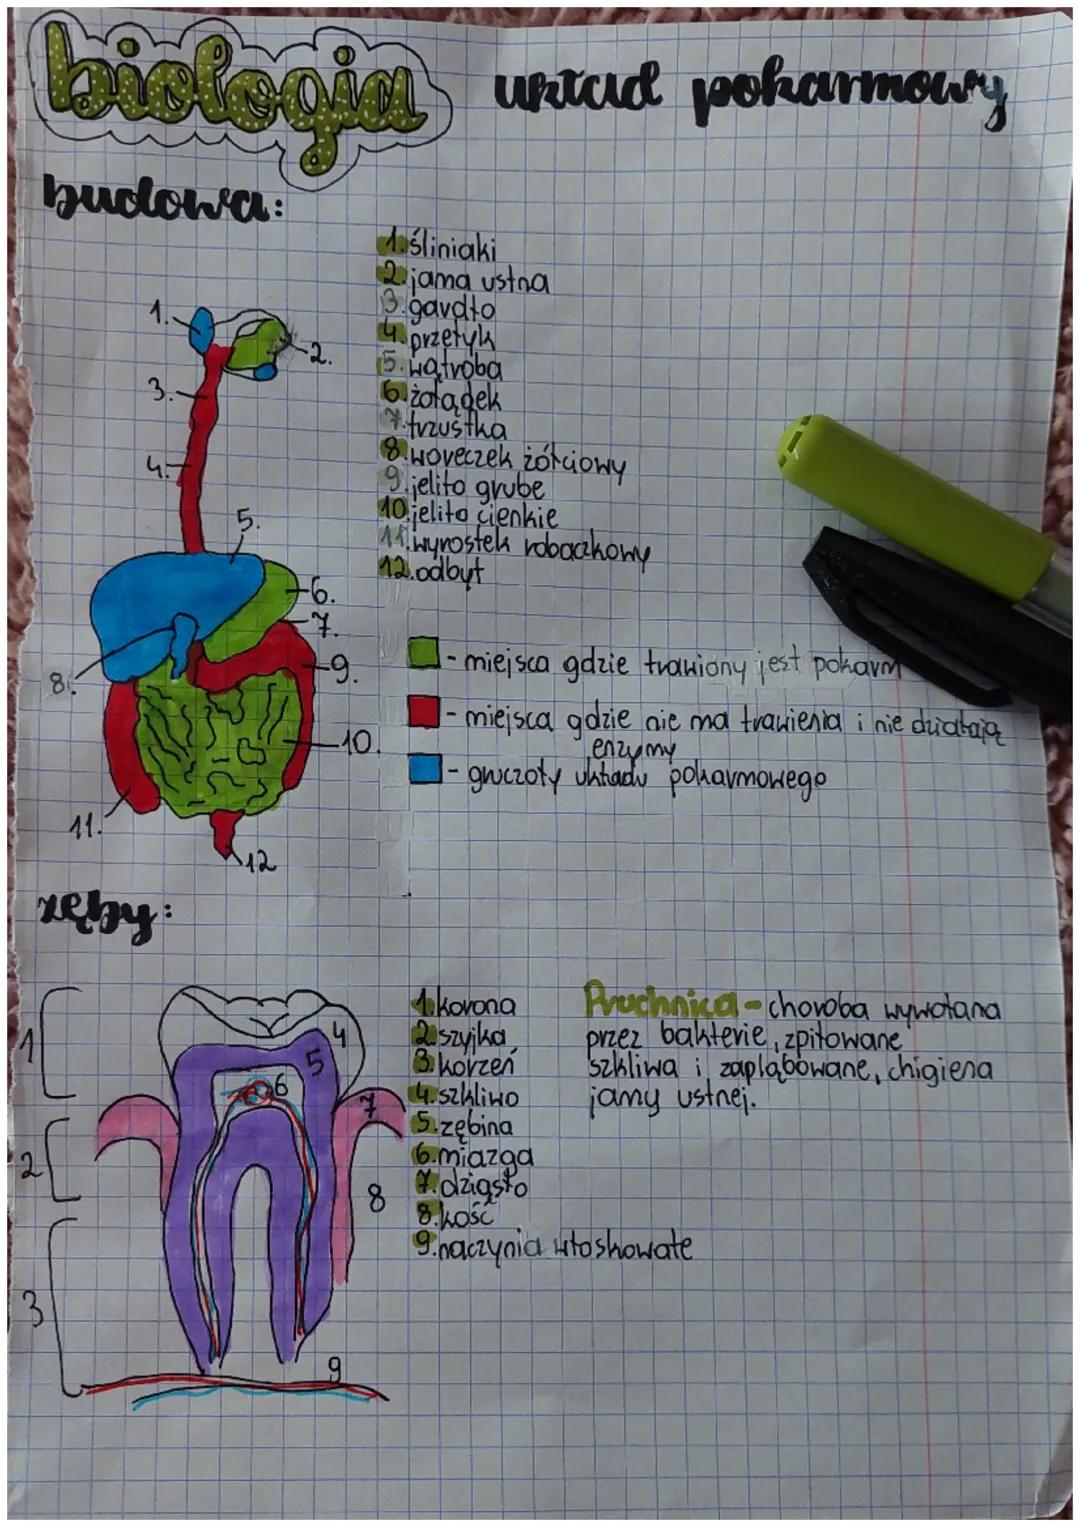 biologia
układ pokarmowy
budowa:
1. śliniaki
2. jama ustna
3. gardło
4. przełyk
5. wątroba
6. żołądek
7. trzustka
8. woreczek żółciowy
9. jelito grube
10. jelito cienkie
11. wyrostek robaczkowy
12. odbyt
1.
2.
3.
4.
5.
6.
7.
8.
9.
10.
11.
12
- miejsca gdzie trawiony jest pokarm
- miejsca gdzie nie ma trawienia i nie działają
enzymy
- gruczoły układu pokarmowego
zęby:
1. korona
2. szyjka
3. korzeń
4. szkliwo
5. zębina
6. miazga
7. dziąsło
8. kość
9. naczynia włoskowate
Pruchnica - choroba wywołana
przez bakterie, zpiłowane
szkliwa i zapląbowane, chigiena
jamy ustnej.
1
2
3
4
5
6
7
8
9